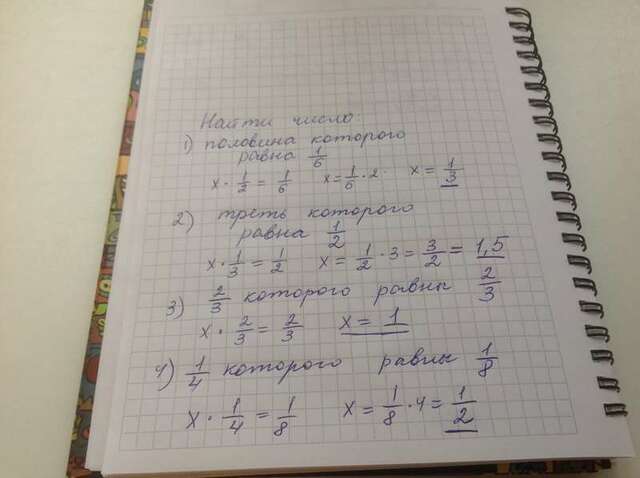 Найти число
1) половина которого
равна 1/6
x · 1/2 = 1/6 x = 1/6 · 2 x = 1/3
2) треть которого
равна 1/2
x · 1/3 = 1/2 x = 1/2 · 3 = 3/2 = 1,5
3) 2/3 которого равны 2/3
x · 2/3 = 2/3 x = 1
4) 1/4 которого равны 1/8
x · 1/4 = 1/8 x = 1/8 · 4 = 1/2